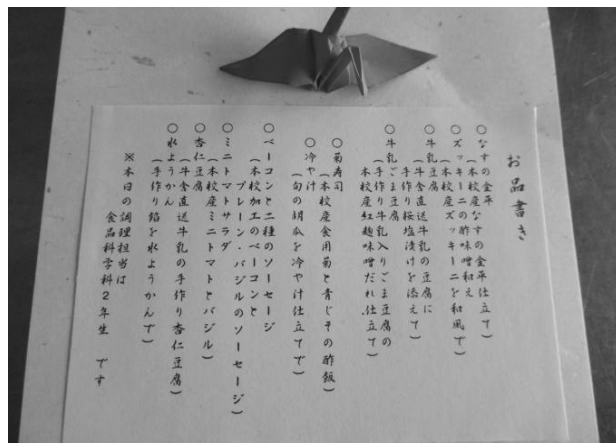 お品書き
○なすの金平
(本校産なすの金平仕立て)
○ズッキーニの酢味噌和え
(本校産ズッキーニを和風で)
○牛乳豆腐
(牛舎直送牛乳の豆腐に
手作り桜塩漬けを添えて)
○牛乳ごま豆腐
(手作り牛乳入りごま豆腐の
本校産紅麹味噌だれ仕立て)
○菊寿司
(本校産食用菊と青じその酢飯)
○冷や汁
(旬の胡瓜を冷や汁仕立てで)
○ベーコンと二種のソーセージ
(本校加工のベーコンと
プレーン・バジルのソーセージ)
○ミニトマトサラダ
(本校産ミニトマトとバジル)
○杏仁豆腐
(牛舎直送牛乳の手作り杏仁豆腐)
○水ようかん
(手作り餡を水ようかんで)
※本日の調理担当は
食品科学科2年生 です